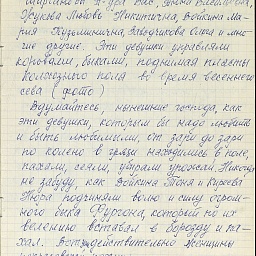 Жукова Любовь Никитична, Войкина Ма-
рия Кузьминична, Завьрчикова Ольга и мно-
гие другие. Эти девушки управляли
коровами, быками, поднимая пласты
колхозного поля во время весеннего
сева (фото)
Вдумайтесь, нынешние господа, как
эти девушки, которым бы надо любить
и быть любимыми, от зари до зари
по колено в грязи находились в поле,
пахали, сеяли, убирали урожай. Никогда
не забуду, как Войкина Тоня и Киреева
Нюра подчиняли волю и силу огром-
ного быка Фургона, который по их
велению вставал в борозду и па-
хал. Вот действительно женщины